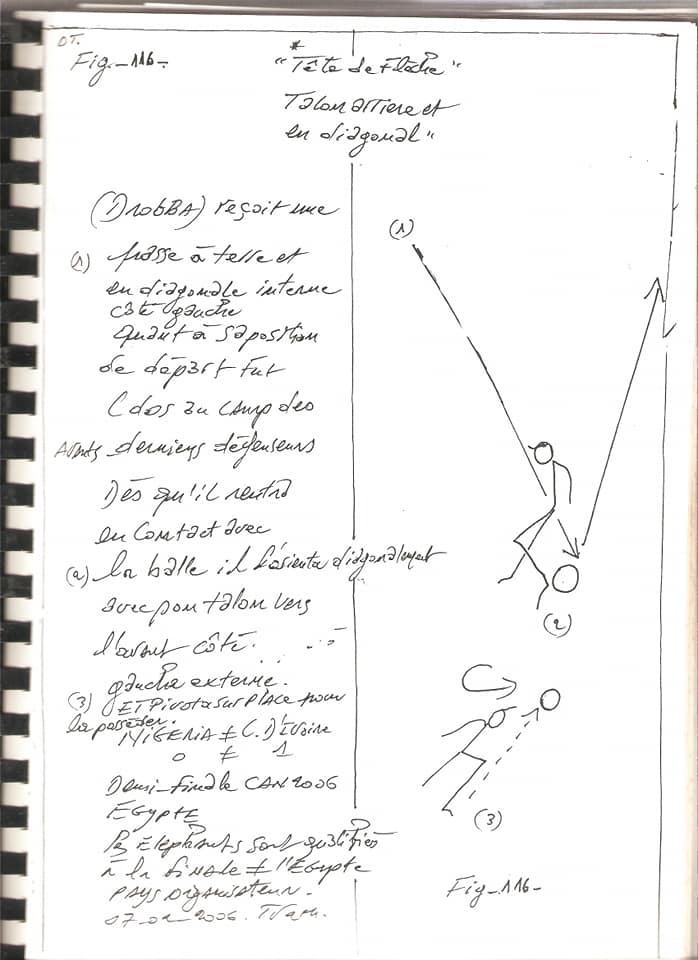 DT.
Fig_116_
*
"Tête de Flèche"
Talon arriere et
en diagonal"
(DrobBA) reçoit une
(1) passe à terre et
en diagonale interne
côté gauche
quant à sa position
de départ fut
(dos au camp des
Avants derniers défenseurs
Dès qu'il rentra
en contact avec
(2) la balle il l'orienta diagonalement
avec son talon vers
l'avant côté.
gauche externe.
(3) ET Pivota sur place pour
la posséder.
NIGERIA ≠ C. D'Ivoire
0 ≠ 1
Demi-finale CAN 2006
EGYPTE
Les Elephants sont qualifiés
à la finale ≠ l'Egypte
PAYS organisateur.
07_02_2006.
(1)
(2)
(3)
Fig_116_